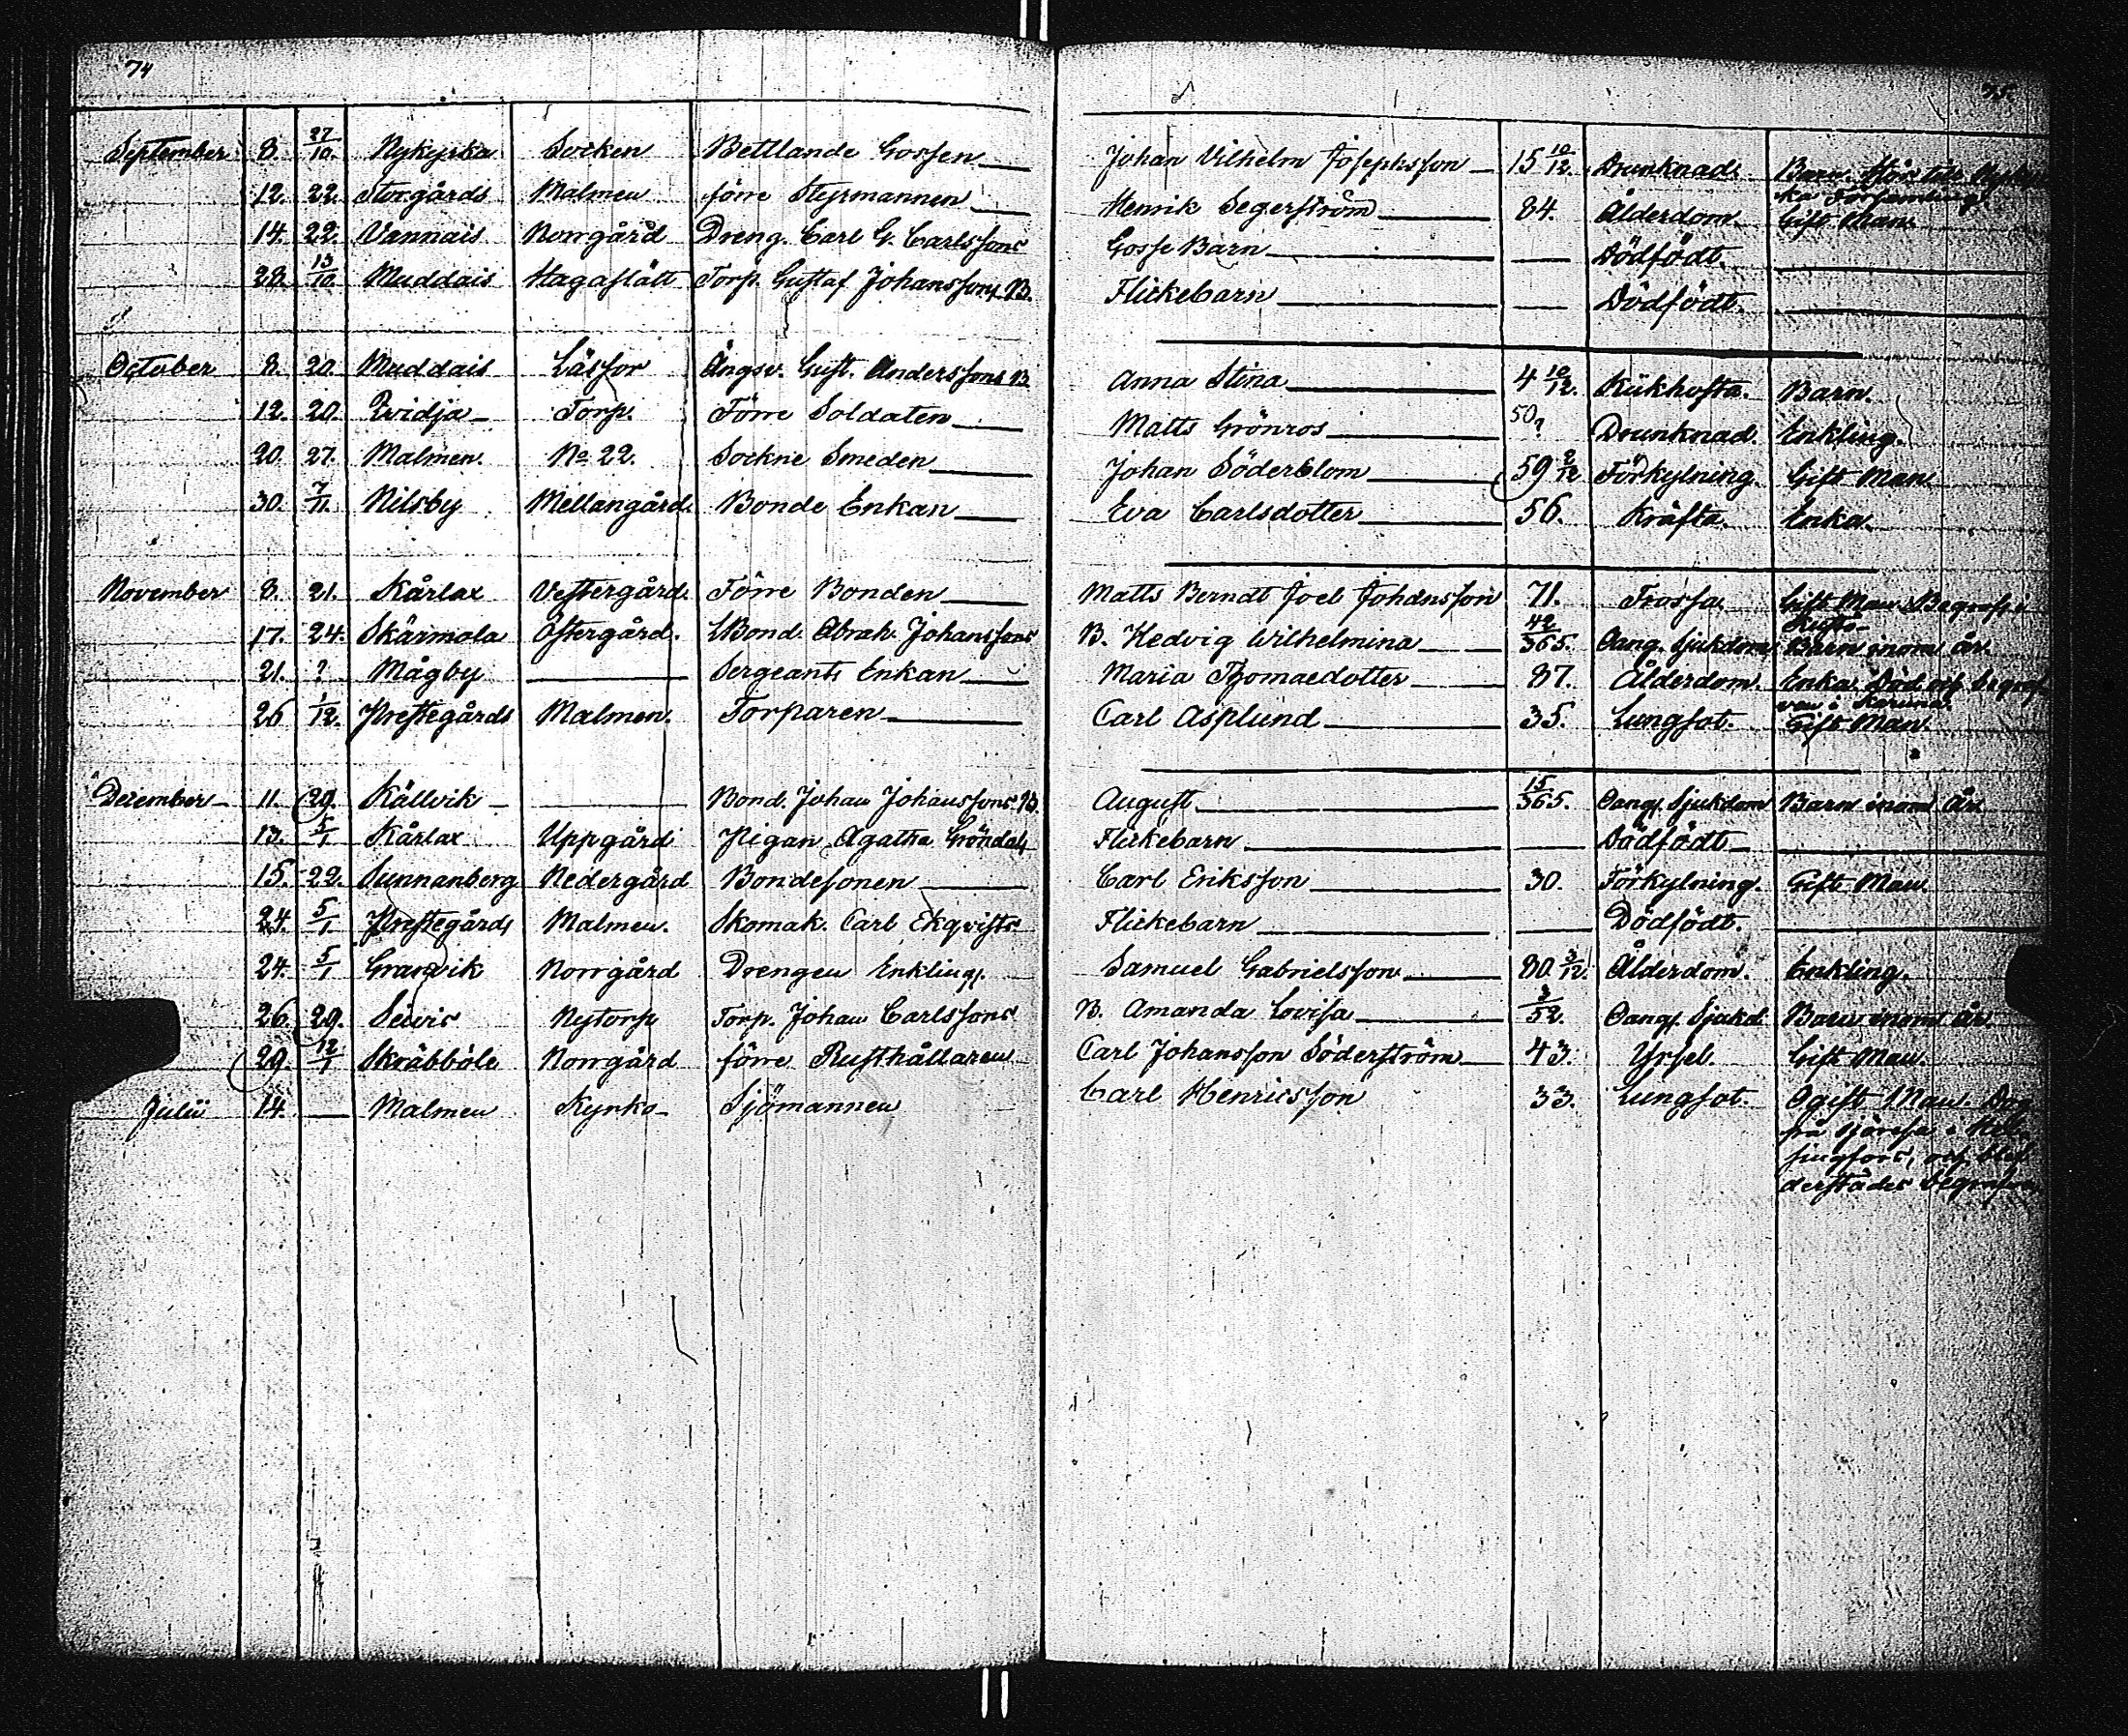 74
75.
September 8. 27/10. Nykyrka Socken Bettlande Gossen Johan Vilhelm Josephsson 15 10/12. Drunknad. Barn. Hörer till
ka Församling.
12. 22. Storgårds Malmen förre Styrmannen Henrik Segerström 84. Ålderdom. Gift Man.
14. 22. Vannais Norrgård Dreng. Carl G. Carlssons Gosse Barn — Dödfödt.
28. 13/10. Muddais Hagaslätt Torp. Gustaf Johanssons B. Flickebarn — Dödfödt.
October 8. 20. Muddais Låssor Ängsv. Gust. Anderssons B. Anna Stina 4 10/12. Kikhosta. Barn.
12. 20. Qvidja Torp. Förre Soldaten Matts Grönros 50? Drunknad. Enkling.
20. 27. Malmen. No 22. Sockne Smeden Johan Söderblom 59 2/12 Förkylning. Gift Man
30. 7/11. Nilsby Mellangård. Bonde Enkan Eva Carlsdotter 56. Kräfta. Enka.
November 8. 21. Kårlax Vestergård. Förre Bonden Matts Berndt Joel Johansson 71. Frossa. Gift Man Begrafv. i
17. 24. Skärmola Östergård. Bond. Abrah. Johanssons B. Hedvig Wilhelmina 42/365. Oang. Sjukdom Barn inom år.
21. ? Mågby — Sergeants Enkan Maria Thomaedotter 87. Ålderdom. Enka. Död och begraf
ven i Karuna.
26 1/12. Prestegårds Malmen. Torparen Carl Asplund 35. Lungsot. Gift Man.
December 11. 29. Källvik — Bond. Johan Johanssons B. August 15/365. Oang. Sjukdom Barn inom år
13. 5/1 Kårlax Uppgård Pigan Agatha Gröndals Flickebarn — Dödfödt
15. 22. Sunnanberg Nedergård Bondesonen Carl Eriksson 30. Förkylning. Gift Man
24. 5/1 Prestegårds Malmen. Skomak. Carl Ekqvists Flickebarn — Dödfödt.
24. 5/1 Granvik Norrgård Drengen Enkling. Samuel Gabrielsson 80 3/12. Ålderdom. Enkling.
26. 29. Seivis Nytorp Torp. Johan Carlssons B. Amanda Lovisa 3/52. Oang. Sjukd. Barn inom år
29. 12/1 Skräbböle Norrgård förre Rusthållaren Carl Johansson Söderström 43. Yrsel. Gift Man.
Julii 14. — Malmen Kyrko- Sjömannen Carl Henricsson 33. Lungsot. Ogift Man. Dog
på sjöresa i Hel-
singfors, och blef
derstädes begrafven